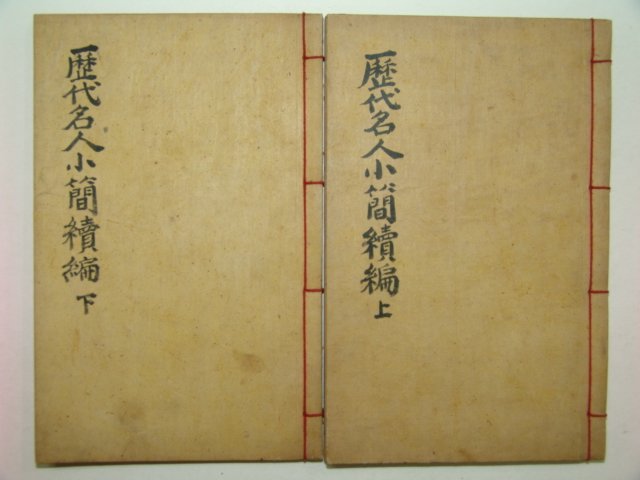 歷代名人小簡續編上
歷代名人小簡續編下